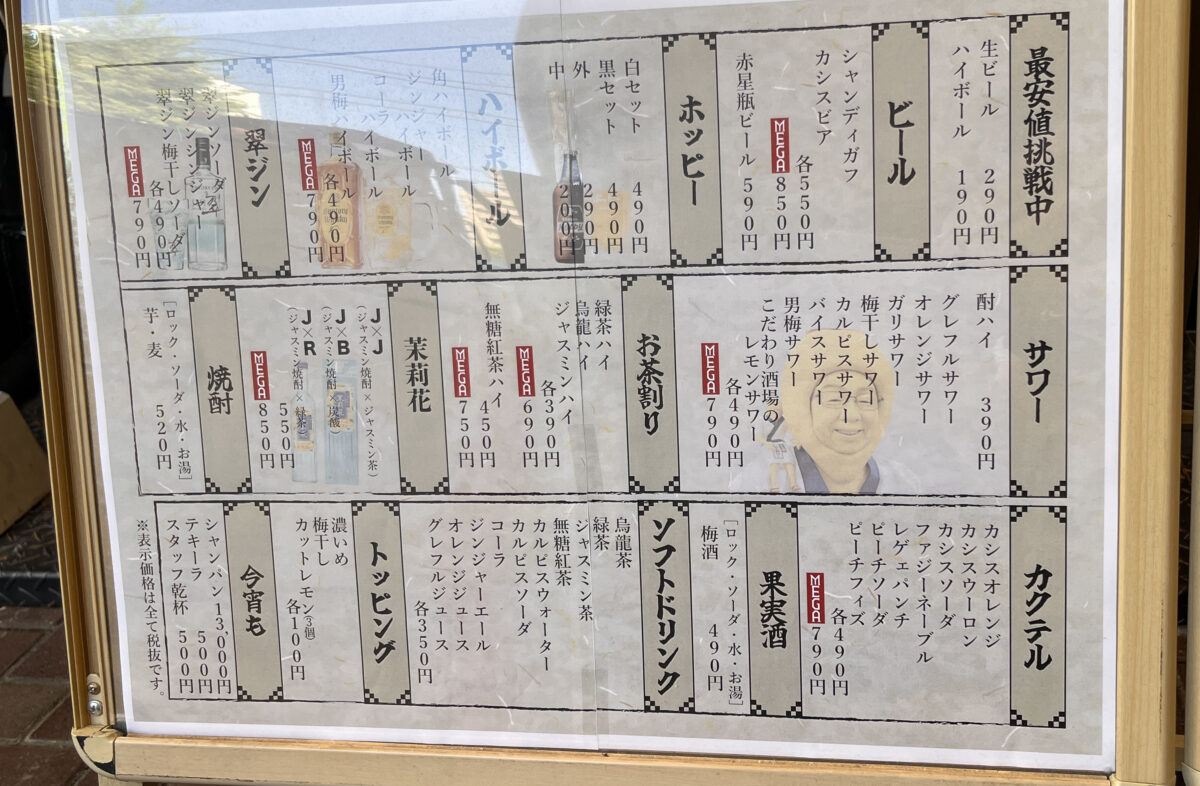 最安値挑戦中
生ビール 290円
ハイボール 190円
ビール
シャンディガフ
カシスビア
各550円
MEGA 850円
赤星瓶ビール 590円
ホッピー
白セット 490円
黒セット 490円
外 290円
中 200円
ハイボール
角ハイボール
ジンジャーハイボール
コーラハイボール
男梅ハイボール
各490円
MEGA 790円
翠ジン
翠ジンソーダ
翠ジンジンジャー
翠ジン梅干しソーダ
各490円
MEGA 790円
サワー
酎ハイ 390円
グレフルサワー
オレンジサワー
ガリサワー
梅干しサワー
カルピスサワー
バイスサワー
男梅サワー
こだわり酒場の
レモンサワー
各490円
MEGA 790円
お茶割り
緑茶ハイ
烏龍ハイ
ジャスミンハイ
各390円
MEGA 690円
無糖紅茶ハイ 450円
MEGA 750円
茉莉花
J×J
(ジャスミン焼酎×ジャスミン茶)
J×B
(ジャスミン焼酎×炭酸)
J×R
(ジャスミン焼酎×緑茶)
550円
MEGA 850円
焼酎
[ロック・ソーダ・水・お湯]
芋・麦 520円
カクテル
カシスオレンジ
カシスウーロン
カシスソーダ
ファジーネーブル
レゲェパンチ
ピーチソーダ
ピーチフィズ
各490円
MEGA 790円
果実酒
[ロック・ソーダ・水・お湯]
梅酒 490円
ソフトドリンク
烏龍茶
緑茶
ジャスミン茶
無糖紅茶
カルピスウォーター
カルピスソーダ
コーラ
ジンジャーエール
オレンジジュース
グレフルジュース
各350円
トッピング
濃いめ
梅干し
カットレモン(3個)
各100円
今宵も
シャンパン 13,000円
テキーラ 500円
スタッフ乾杯 500円
※表示価格は全て税抜です。